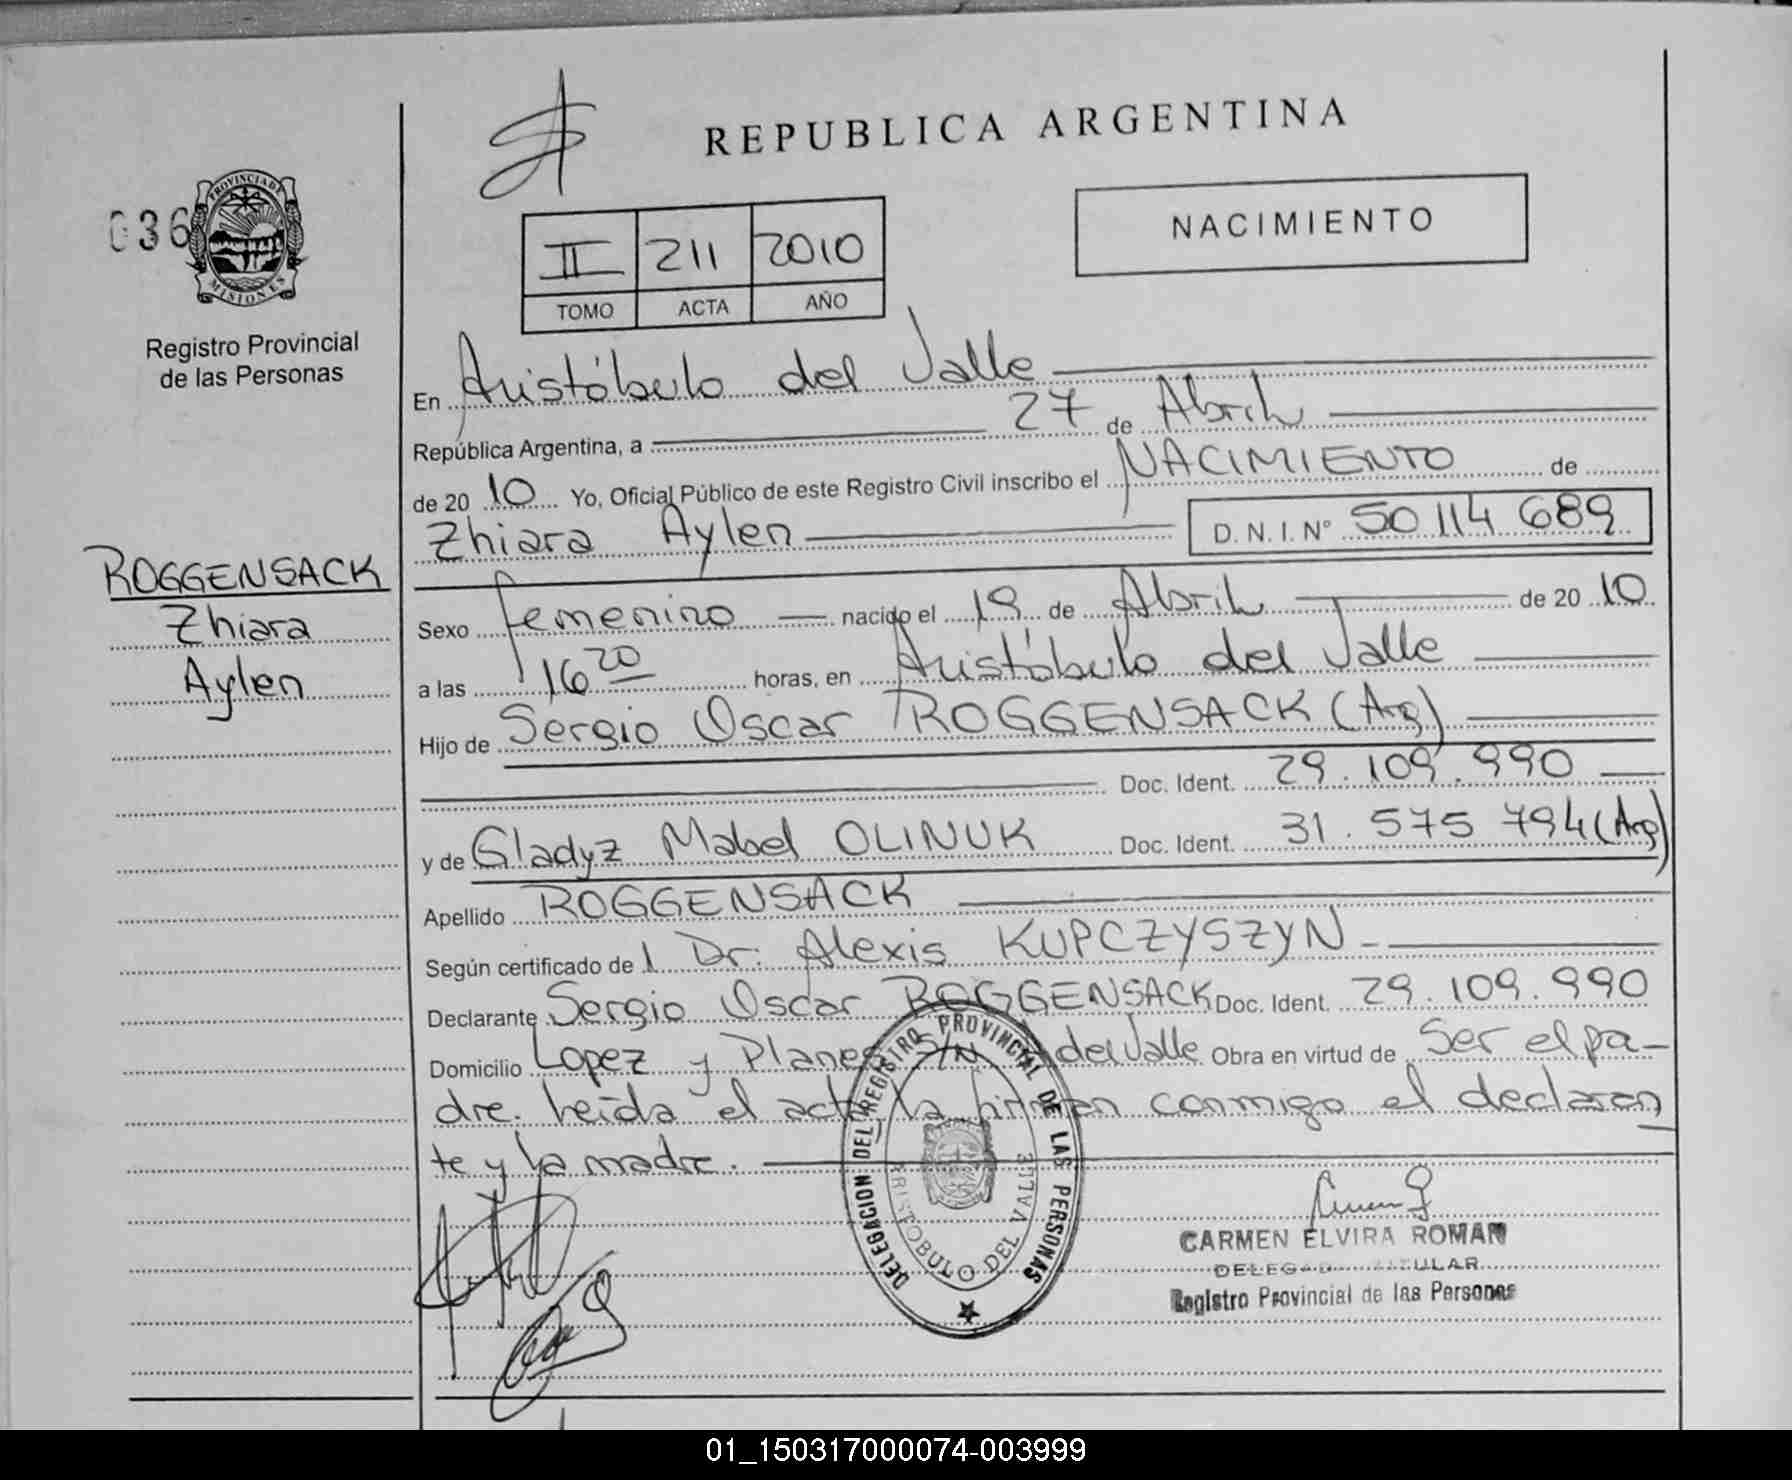 REPUBLICA ARGENTINA
036
PROVINCIA DE MISIONES
Registro Provincial
de las Personas
NACIMIENTO
II 211 2010
TOMO ACTA AÑO
En Aristóbulo del Valle
República Argentina, a 27 de Abril
de 2010 Yo, Oficial Público de este Registro Civil inscribo el NACIMIENTO de
Zhiara Aylen D. N. I. Nº 50 114 689
ROGGENSACK
Zhiara
Aylen
Sexo femenino nacido el 19 de Abril de 2010
a las 16 20 horas, en Aristóbulo del Valle
Hijo de Sergio Oscar ROGGENSACK (Arg)
Doc. Ident. 29.109.990
y de Gladyz Mabel OLINUK Doc. Ident. 31.575 794 (Arg)
Apellido ROGGENSACK
Según certificado de l Dr. Alexis KUPCZYSZYN
Declarante Sergio Oscar ROGGENSACK Doc. Ident. 29.109.990
Domicilio Lopez y Planes S/N del Valle Obra en virtud de Ser el pa-
dre. Leida el acta la firman conmigo el declaran
te y la madre.
DELEGACION DEL REGISTRO PROVINCIAL DE LAS PERSONAS
ARISTOBULO DEL VALLE
CARMEN ELVIRA ROMAN
DELEGADA TITULAR
Registro Provincial de las Personas
01_150317000074-003999